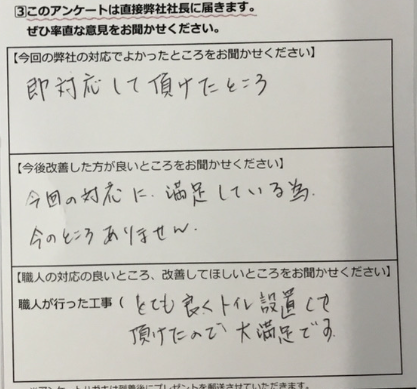 ③このアンケートは直接弊社社長に届きます。
ぜひ率直な意見をお聞かせください。
【今回の弊社の対応でよかったところをお聞かせください】
即対応して頂けたところ
【今後改善した方が良いところをお聞かせください】
今回の対応に、満足している為、
今のところありません。
【職人の対応の良いところ、改善してほしいところをお聞かせください】
職人が行った工事（とても良くトイレ設置して
頂けたので大満足です